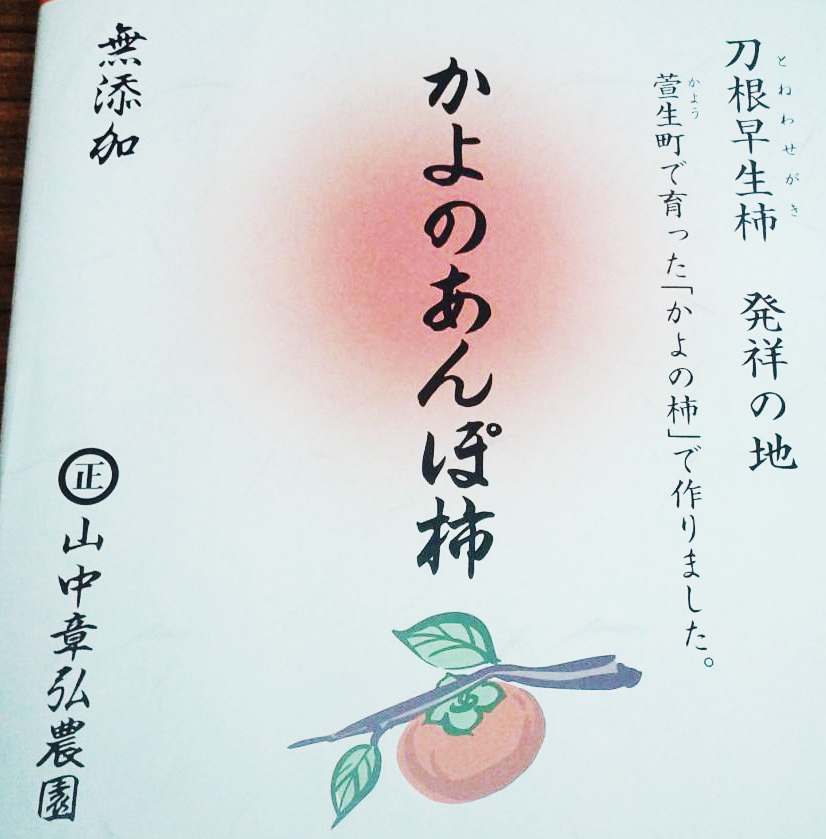 刀根早生柿 発祥の地
とねわせがき
萱生町で育った「かよの柿」で作りました。
かよう
かよのあんぽ柿
無添加
正 山中章弘農園